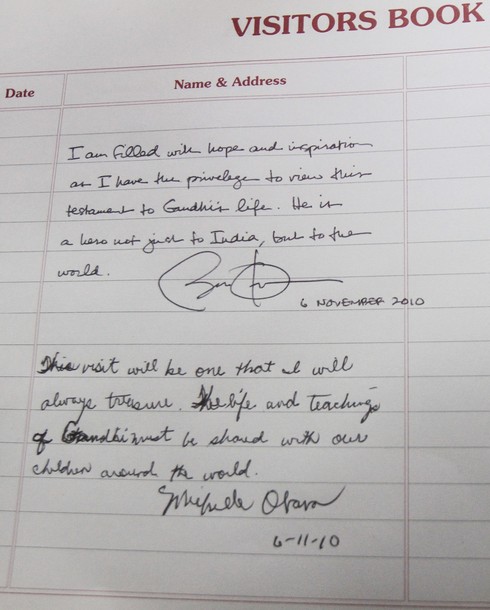 VISITORS BOOK
Date
Name & Address
I am filled with hope and inspiration
as I have the privelege to view this
testament to Gandhi's life. He is
a hero not just to India, but to the
world.
6 NOVEMBER 2010
This visit will be one that I will
always treasure. The life and teachings
of Gandhi must be shared with our
children around the world.
Michelle Obama
6-11-10